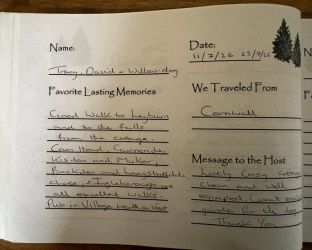 Name:
Tracy, David + Willow-dog
Favorite Lasting Memories
Good walk to Leyburn
and to the falls
from the cottage.
Cam Head, Gunnerside,
Kisdon and Muker,
Buckden and
close, + Ingleborough are
all excellent walks.
Pub in Village worth a visit
Date:
11/7/26 25/7/26
We Traveled From
Cornwall
Message to the Host
Lovely Cosy cottage
clean and well
equiped. Great
for the dog
Thank You